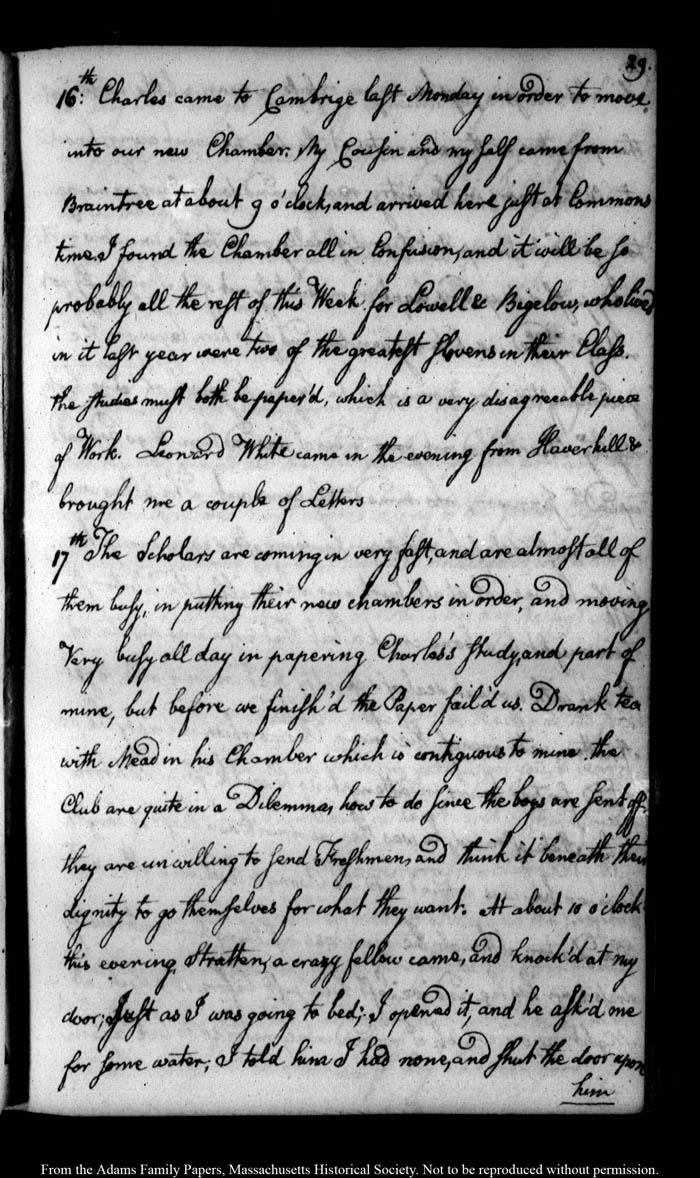 29.
16:th Charles came to Cambrige last Monday in order to move
into our new Chamber. My Cousin and my self came from
Braintree at about 9 o'clock, and arrived here just at Commons
time. I found the Chamber all in Confusion, and it will be so
probably all the rest of this Week. for Lowell & Bigelow, who lived
in it last year were two of the greatest slovens in their Class.
the studies must both be paper'd, which is a very disagreeable piece
of Work. Leonard White came in the evening from Haverhill &
brought me a couple of Letters
17th The Scholars are coming in very fast, and are almost all of
them busy, in putting their new chambers in order, and moving
Very busy all day in papering Charles's study, and part of
mine, but before we finish'd the Paper fail'd us. Drank tea
with Mead in his Chamber which is contiguous to mine. the
Club are quite in a Dilemma, how to do since the boys are sent off.
they are unwilling to send Freshmen, and think it beneath their
dignity to go themselves for what they want. At about 10 o'clock
this evening, Stratten, a crazy fellow came, and knock'd at my
door; Just as I was going to bed; I opened it, and he ask'd me
for some water; I told him I had none, and shut the door upon
him
From the Adams Family Papers, Massachusetts Historical Society. Not to be reproduced without permission.